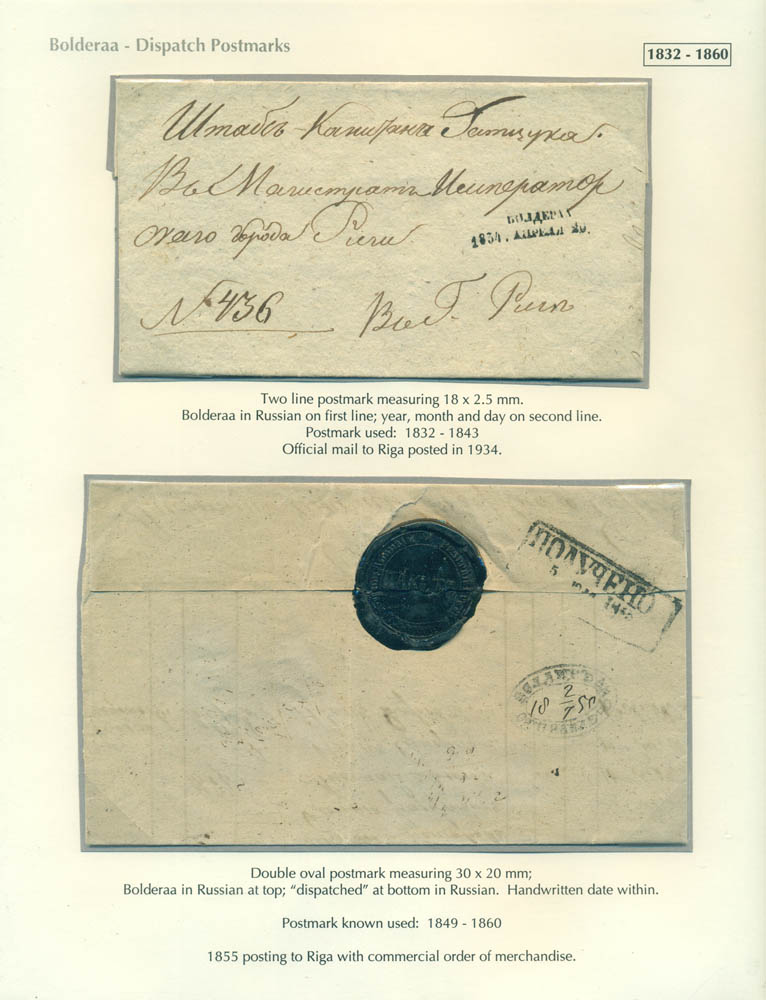 Bolderaa - Dispatch Postmarks
1832 - 1860
Штабсъ Капитана Гатцука.
Въ Магистратъ Император
скаго города Риги
БОЛДЕРАА
1834. АПРЕЛЯ 20.
№ 436
Въ Г. Риги
Two line postmark measuring 18 x 2.5 mm.
Bolderaa in Russian on first line; year, month and day on second line.
Postmark used: 1832 - 1843
Official mail to Riga posted in 1934.
ПОЛУЧЕНО
5
18 2/7 55
Double oval postmark measuring 30 x 20 mm;
Bolderaa in Russian at top; “dispatched” at bottom in Russian. Handwritten date within.
Postmark known used: 1849 - 1860
1855 posting to Riga with commercial order of merchandise.